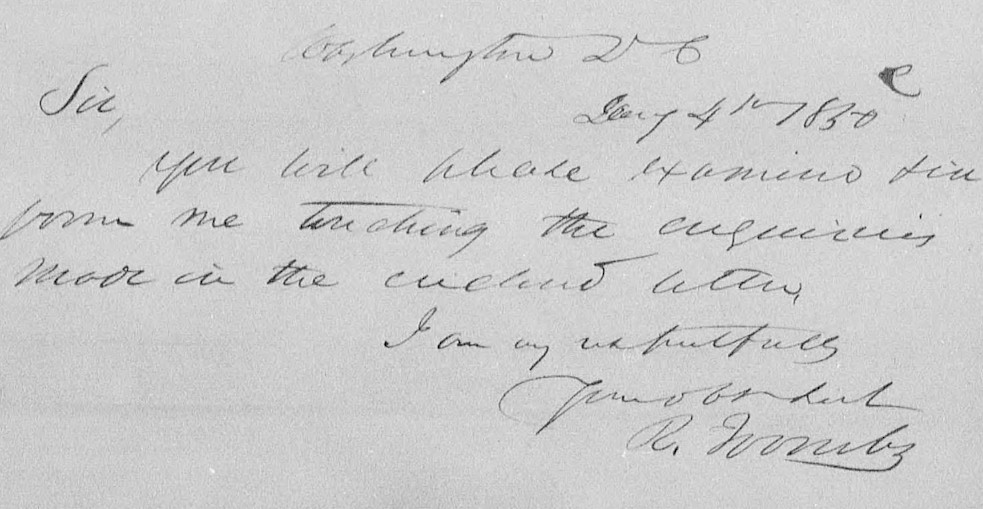 Washington D C
Jany 4th 1850
Sir,
You will please examine & in
form me touching the enquiries
made in the enclosed letter,
I am very respectfully
Your obt Sevt
R. Toombs